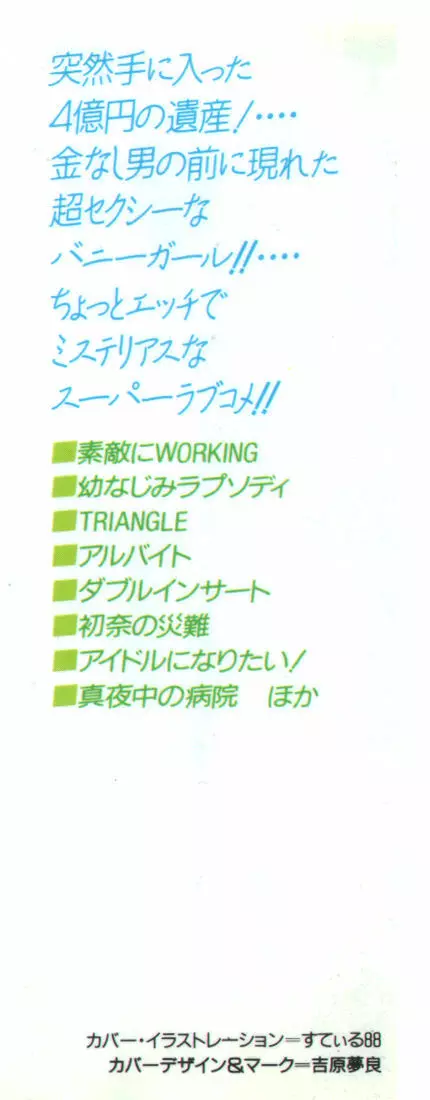 突然手に入った
4億円の遺産!‥‥
金なし男の前に現れた
超セクシーな
バニーガール!!‥‥
ちょっとエッチで
ミステリアスな
スーパーラブコメ!!
■素敵にWORKING
■幼なじみラプソディ
■TRIANGLE
■アルバイト
■ダブルインサート
■初奈の災難
■アイドルになりたい!
■真夜中の病院　ほか
カバー・イラストレーション=すてぃる88
カバーデザイン&マーク=吉原夢良